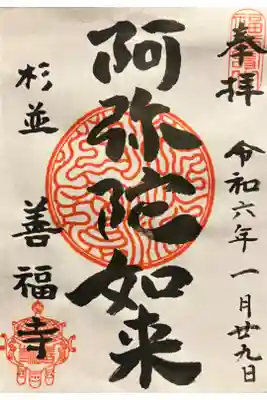 奉拝
令和六年一月廿九日
阿弥陀如来
杉並
善福寺